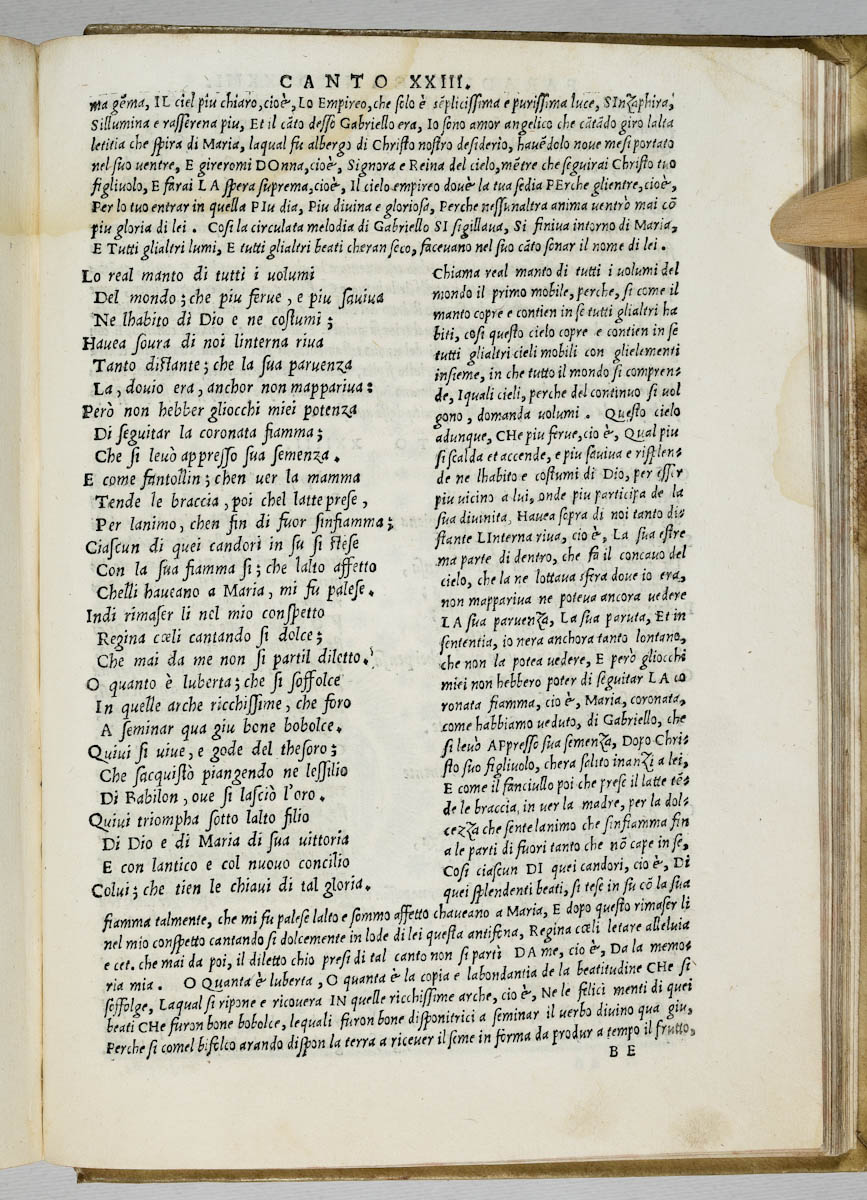 CANTO XXIII.
ma gẽma, IL ciel piu chiaro, cioè, Lo Empireo, che solo è sẽplicissima e purissima luce, SInzaphira,
Sillumina e rasserena piu, Et il cãto desso Gabriello era, Io sono amor angelico che cãtãdo giro lalta
letitia che spira di Maria, laqual fu albergo di Christo nostro desiderio, hauẽdolo noue mesi portato
nel suo uentre, E gireromi DOnna, cioè, Signora e Reina del cielo, mẽtre che seguirai Christo tuo
figliuolo, E farai LA spera suprema, cioè, Il cielo empireo douè la tua sedia PErche glientre, cioè,
Per lo tuo entrar in quella PIu dia, Piu diuina e gloriosa, Perche nessunaltra anima uentrò mai cõ
piu gloria di lei. Cosi la circulata melodia di Gabriello SI sigillaua, Si finiua intorno di Maria,
E Tutti glialtri lumi, E tutti glialtri beati cheran seco, faceuano nel suo cãto sonar il nome di lei.
Lo real manto di tutti i uolumi
Del mondo; che piu ferue, e piu sauiua
Ne lhabito di Dio e ne costumi;
Hauea soura di noi linterna riua
Tanto distante; che la sua paruenza
La, douio era, anchor non mappariua:
Però non hebber gliocchi miei potenza
Di seguitar la coronata fiamma;
Che si leuò appresso sua semenza.
E come fantollin; chen uer la mamma
Tende le braccia, poi chel latte prese,
Per lanimo, chen fin di fuor sinfiamma;
Ciascun di quei candori in su si stese
Con la sua fiamma si; che lalto affetto
Chelli haueano a Maria, mi fu palese.
Indi rimaser li nel mio conspetto
Regina cœli cantando si dolce;
Che mai da me non si partil diletto.
O quanto è luberta; che si soffolce
In quelle arche ricchissime, che foro
A seminar qua giu bone bobolce.
Quiui si uiue, e gode del thesoro;
Che sacquistò piangendo ne lessilio
Di Babilon, oue si lasciò l'oro.
Quiui triompha sotto lalto filio
Di Dio e di Maria di sua uittoria
E con lantico e col nuouo concilio
Colui; che tien le chiaui di tal gloria.
Chiama real manto di tutti i uolumi del
mondo il primo mobile, perche, si come il
manto copre e contien in se tutti glialtri ha
biti, cosi questo cielo copre e contien in sè
tutti glialtri cieli mobili con glielementi
insieme, in che tutto il mondo si compren-
de, I quali cieli, perche del continuo si uol
gono, domanda uolumi. Questo cielo
adunque, CHe piu ferue, cio è, Qual piu
si scalda et accende, e piu sauiua e risplen-
de ne lhabito e costumi di Dio, per esser
piu uicino a lui, onde piu participa de la
sua diuinita, Hauea sopra di noi tanto di-
stante LInterna riua, cio è, La sua estre
ma parte di dentro, che fa il concauo del
cielo, che la ne lottaua sfera doue io era,
non mappariua ne poteua ancora uedere
LA sua paruenza, La sua paruta, Et in
sententia, io nera anchora tanto lontano,
che non la potea uedere, E però gliocchi
miei non hebbero poter di seguitar LA co
ronata fiamma, cio è, Maria, coronata,
come habbiamo ueduto, di Gabriello, che
si leuò APpresso sua semenza, Dopo Chri-
sto suo figliuolo, chera salito inanzi a lei,
E come il fanciullo poi che prese il latte tẽ-
de le braccia, in uer la madre, per la dol-
cezza che sente lanimo che sinfiamma fin
a le parti di fuori tanto che nõ cape in se,
Cosi ciascun DI quei candori, cio è, Di
quei splendenti beati, si tese in su cõ la sua
fiamma talmente, che mi fu palese lalto e sommo affetto chaueano a Maria, E dopo questo rimaser li
nel mio conspetto cantando si dolcemente in lode di lei questa antifena, Regina cœli letare alleluia
e cet. che mai da poi, il diletto chio presi di tal canto non si partì DA me, cio è, Da la memo-
ria mia. O QVanta è luberta, O quanta è la copia e labondantia de la beatitudine CHe si
soffolge, Laqual si ripone e ricouera IN quelle ricchissime arche, cio è, Ne le felici menti di quei
beati CHe furon bone bobolce, lequali furon bone disponitrici a seminar il uerbo diuino qua giu,
Perche si comel bifolco arando dispon la terra a riceuer il seme in forma da produr a tempo il frutto,
B E